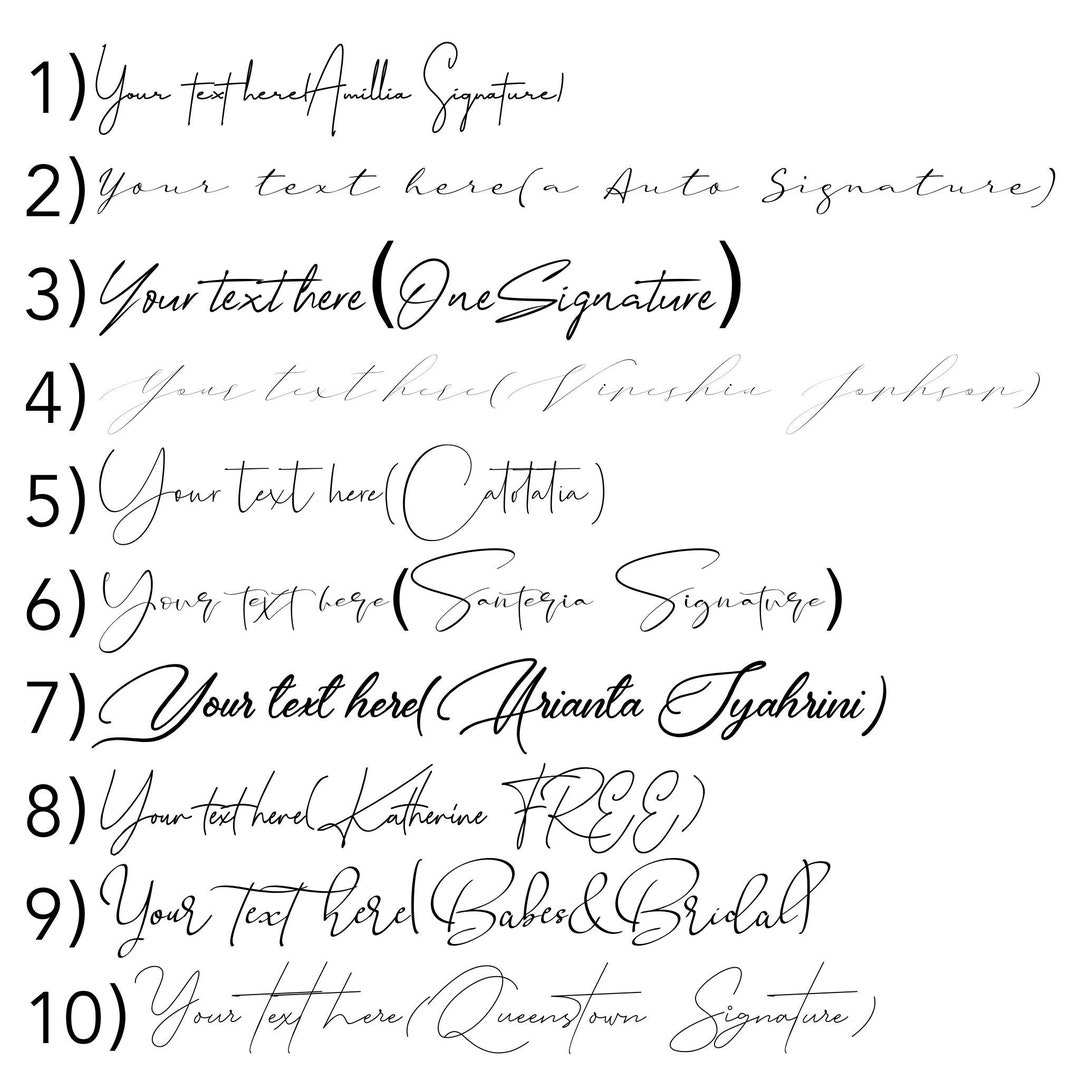 1) Your text here(Amillia Signature)
2) Your text here(a Auto Signature)
3) Your text here(One Signature)
4) Your text here(Vineshia Jonhson)
5) Your text here(Catolatia)
6) Your text here(Santeria Signature)
7) Your text here(Urianta Tyahrini)
8) Your text here(Katherine FREE)
9) Your text here(Babes&Bridal)
10) Your text here(Queenstown Signature)